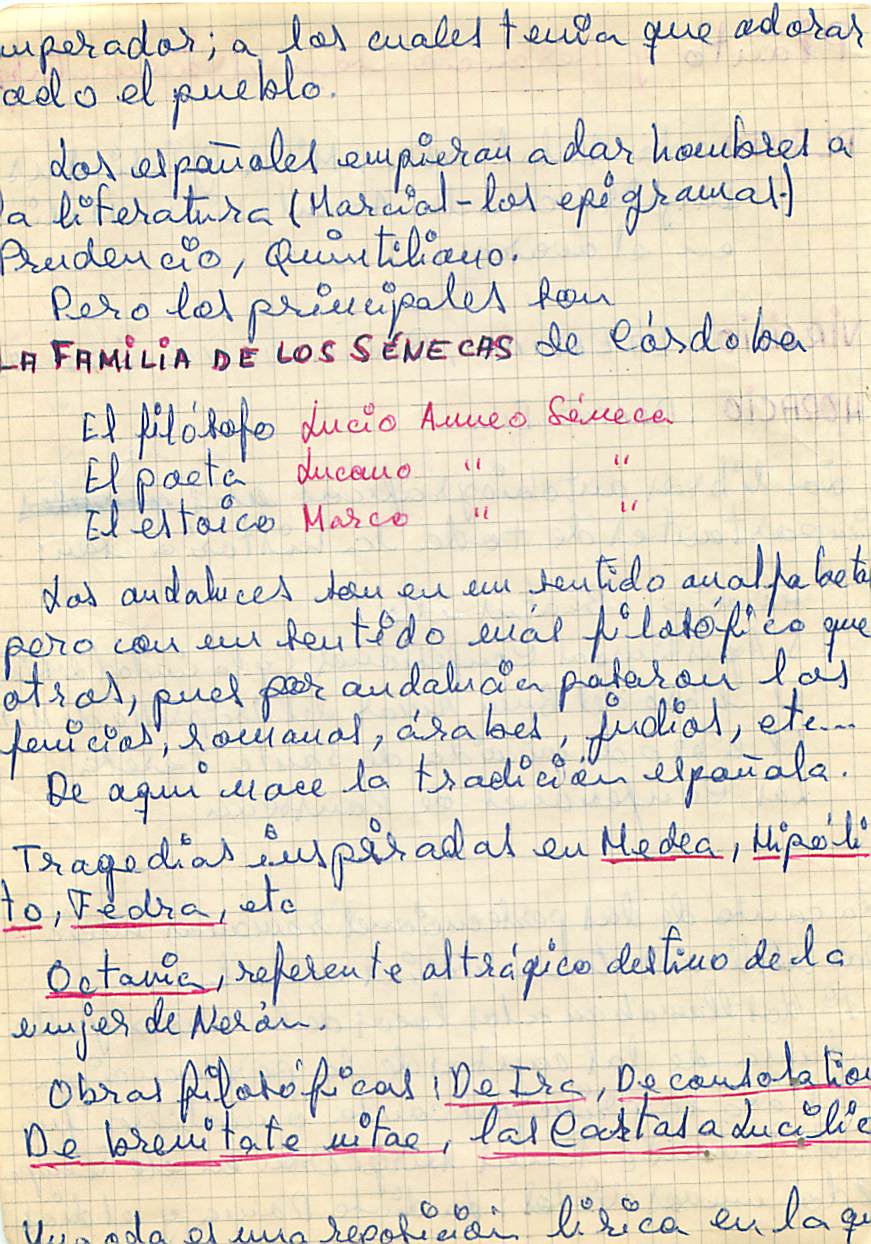 mperador; a los cuales tenía que adorar
odo el pueblo.
Los españoles empiezan a dar hombres a
a literatura (Marcial-los epigramas.)
Prudencio, Quintiliano.
Pero los principales son
LA FAMILIA DE LOS SÉNECAS de Córdoba
El filósofo Lucio Anneo Séneca
El poeta Lucano " "
El estoico Marco " "
Los andaluces son en un sentido analfabeta
pero con un sentido más filosófico que
otros, pues por andalucía pasaron los
fenicios, romanos, árabes, judios, etc...
De aqui nace la tradición española.
Tragedias inspiradas en Medea, Hipóli
to, Fedra, etc
Octavia, referente al trágico destino de la
mujer de Nerón.
Obras filosóficas: De Ira, De consolatio
De brevitate vitae, las Cartas a Lucilio
Una oda es una reposición lírica en la qu